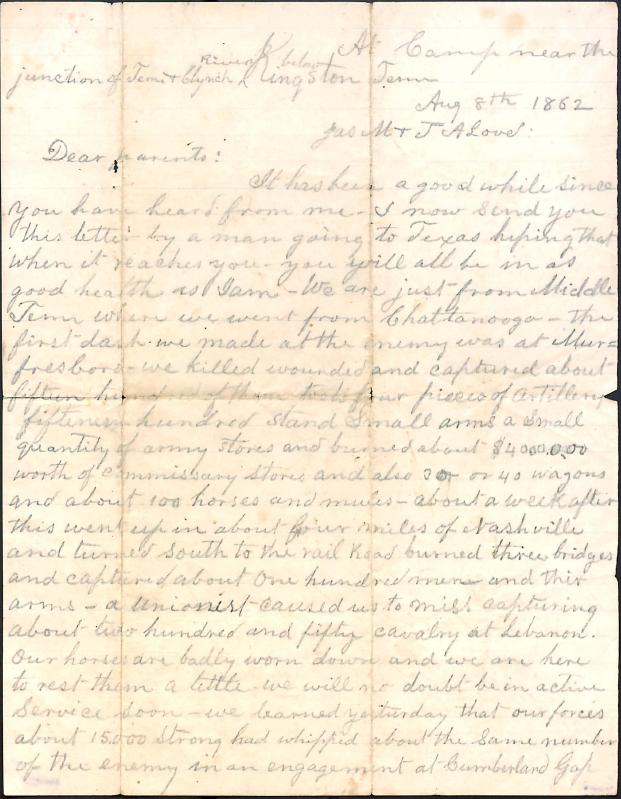 At Camp near the
junction of Tenn & Clynch River & below Kingston Tenn
Aug 8th 1862
Jas M & T A Love:
Dear parents:
It has been a good while since
you have heard from me - I now send you
this letter by a man going to Texas hiping that
when it reaches you - you will all be in as
good health as I am - We are just from Middle
Tenn where we went from Chattanooga - the
first dash we made at the enemy was at Mur=
fresboro - we killed wounded and captured about
fifteen hundred of them took four pieces of Artillery
fifteen hundred stand Small arms a Small
quantity of army stores and burned about $400000
worth of Commissary stores and also 30 or 40 wagons
and about 100 horses and mules - about a week after
this went up in about four miles of Nashville
and turned South to the rail Road burned three bridges
and captured about One hundred men and thir
arms - a Unionist caused us to miss capturing
about two hundred and fifty cavalry at Lebanon.
Our horses are badly worn down and we are here
to rest them a little we will no doubt be in active
Service soon - we learned yesturday that our forces
about 15.000 Strong had whipped about the Same number
of the enemy in an engagement at Cumberland Gap